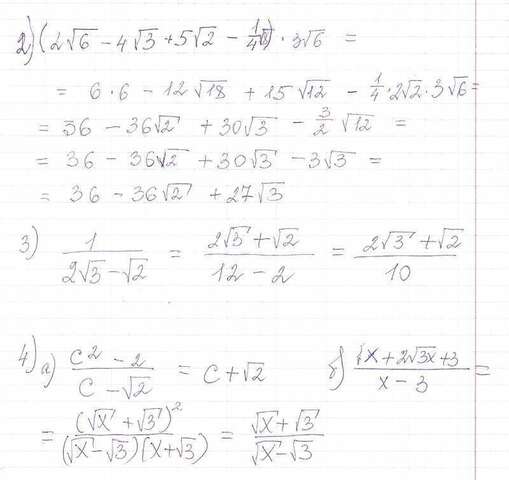 2) (2√6 − 4√3 + 5√2 − 1/4√8) · 3√6 =
= 6·6 − 12√18 + 15√12 − 1/4·2√2·3√6 =
= 36 − 36√2 + 30√3 − 3/2 √12 =
= 36 − 36√2 + 30√3 − 3√3 =
= 36 − 36√2 + 27√3
3) 1/(2√3 − √2) = (2√3 + √2)/(12 − 2) = (2√3 + √2)/10
4) а) (c² − 2)/(c − √2) = c + √2 б) (x + 2√3x + 3)/(x − 3) =
= (√x + √3)²/((√x − √3)(x + √3)) = (√x + √3)/(√x − √3)